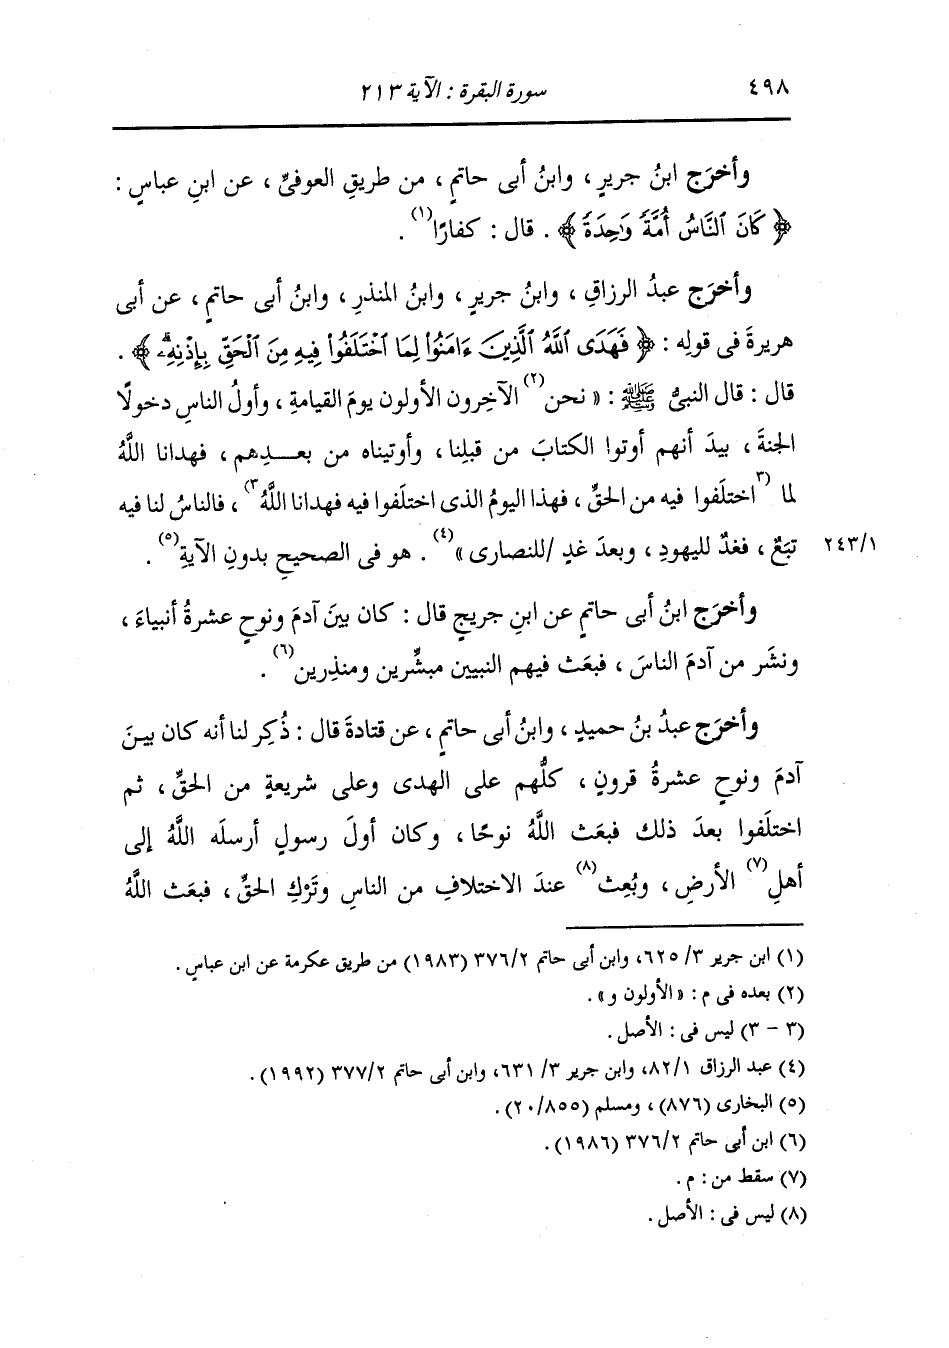 ٤٩٨ سورة البقرة : الآية ٢١٣
وأخرَج ابنُ جريرٍ ، وابنُ أبى حاتمٍ ، من طريقِ العوفىِّ ، عن ابنِ عباسٍ :
﴿ كَانَ ٱلنَّاسُ أُمَّةً وَٰحِدَةً ﴾ . قال : كفارًا(١) .
وأخرَج عبدُ الرزاقِ ، وابنُ جريرٍ ، وابنُ المنذرِ ، وابنُ أبى حاتمٍ ، عن أبى
هريرةَ فى قولِه : ﴿ فَهَدَى ٱللَّهُ ٱلَّذِينَ ءَامَنُوا۟ لِمَا ٱخْتَلَفُوا۟ فِيهِ مِنَ ٱلْحَقِّ بِإِذْنِهِۦۗ ﴾ .
قال : قال النبىُّ ﷺ : « نحن(٢) الآخِرون الأولون يومَ القيامةِ ، وأولُ الناسِ دخولًا
الجنةَ ، بيدَ أنهم أوتوا الكتابَ من قبلِنا ، وأوتيناه من بعدِهم ، فهدانا اللَّهُ
لما (٣اختلَفوا فيه من الحقِّ ، فهذا اليومُ الذى اختلَفوا فيه فهدانا اللَّهُ٣) ، فالناسُ لنا فيه
تبَعٌ ، فغدٌ لليهودِ ، وبعدَ غدٍ /للنصارى »(٤) . هو فى الصحيحِ بدونِ الآيةِ(٥) . ٢٤٣/١
وأخرَج ابنُ أبى حاتمٍ عن ابنِ جريجٍ قال : كان بينَ آدمَ ونوحٍ عشرةُ أنبياءَ ،
ونشَر من آدمَ الناسَ ، فبعَث فيهم النبيين مبشِّرين ومنذِرين(٦) .
وأخرَج عبدُ بنُ حميدٍ ، وابنُ أبى حاتمٍ ، عن قتادةَ قال : ذُكِر لنا أنه كان بينَ
آدمَ ونوحٍ عشرةُ قرونٍ ، كلُّهم على الهدى وعلى شريعةٍ من الحقِّ ، ثم
اختلَفوا بعدَ ذلك فبعَث اللَّهُ نوحًا ، وكان أولَ رسولٍ أرسلَه اللَّهُ إلى
أهلِ(٧) الأرضِ ، وبُعِث(٨) عندَ الاختلافِ من الناسِ وتَرْكِ الحقِّ ، فبعَث اللَّهُ
(١) ابن جرير ٣/ ٦٢٥، وابن أبى حاتم ٣٧٦/٢ (١٩٨٣) من طريق عكرمة عن ابن عباس .
(٢) بعده فى م : « الأولون و » .
(٣ - ٣) ليس فى : الأصل .
(٤) عبد الرزاق ٨٢/١، وابن جرير ٣/ ٦٣١، وابن أبى حاتم ٣٧٧/٢ (١٩٩٢) .
(٥) البخارى (٨٧٦) ، ومسلم (٢٠/٨٥٥) .
(٦) ابن أبى حاتم ٣٧٦/٢ (١٩٨٦) .
(٧) سقط من : م .
(٨) ليس فى : الأصل .